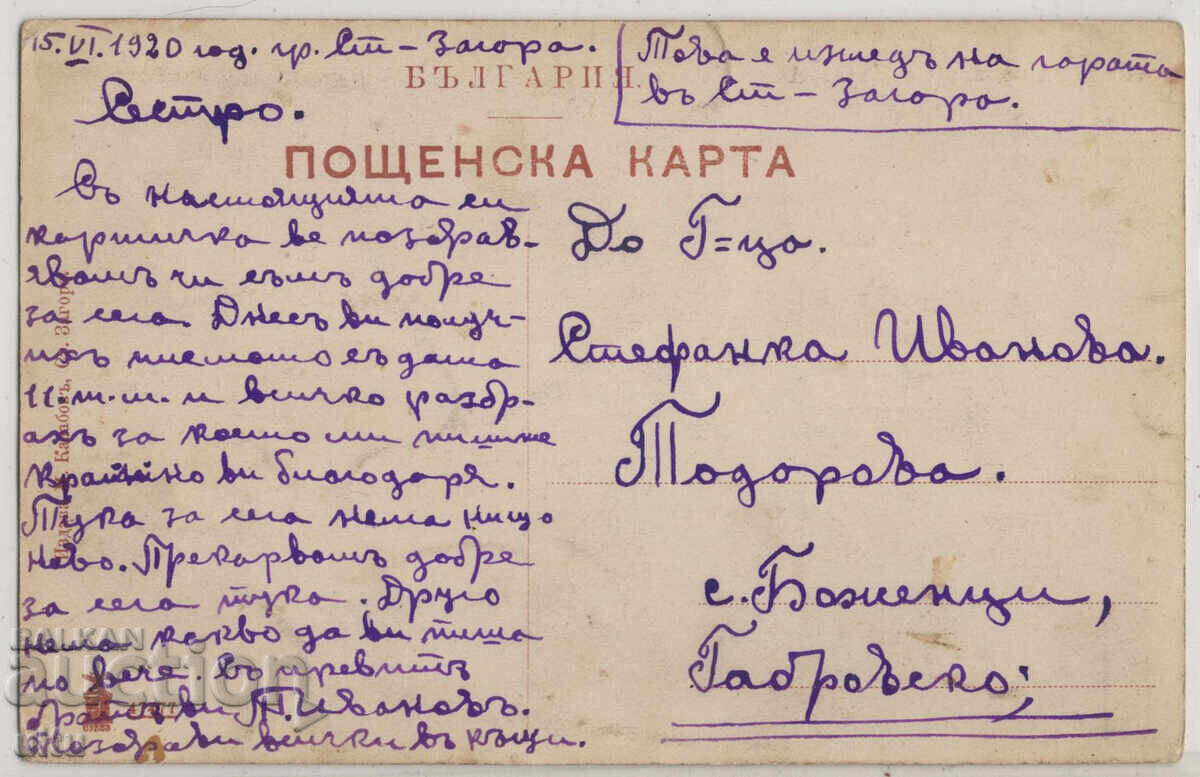 15.VI.1920 год. гр. Ст-Загора.
Това е изгледъ на гората
въ Ст-Загора.
БЪЛГАРИЯ.
Сестро.
ПОЩЕНСКА КАРТА
Съ настоящията си
картичка ве поздрав-
явамъ чи съмъ добре
за сега. Днесъ ви получ-
ихъ писмото съ дата
11.т.м. и всичко разбр-
ахъ за което ми пишите
крайно ви благодаря.
Тука за сега нема нищо
ново. Прекарвамъ добре
за сега тука. Друго
нема какво да ви пиша
по вече.
ви П. Ивановъ.
Поздрави всички въ къщи.
До Г=ца.
Стефанка Иванова.
Тодорова.
с. Боженци,
Габровско;
Ст. Загора
BALKAN
auction